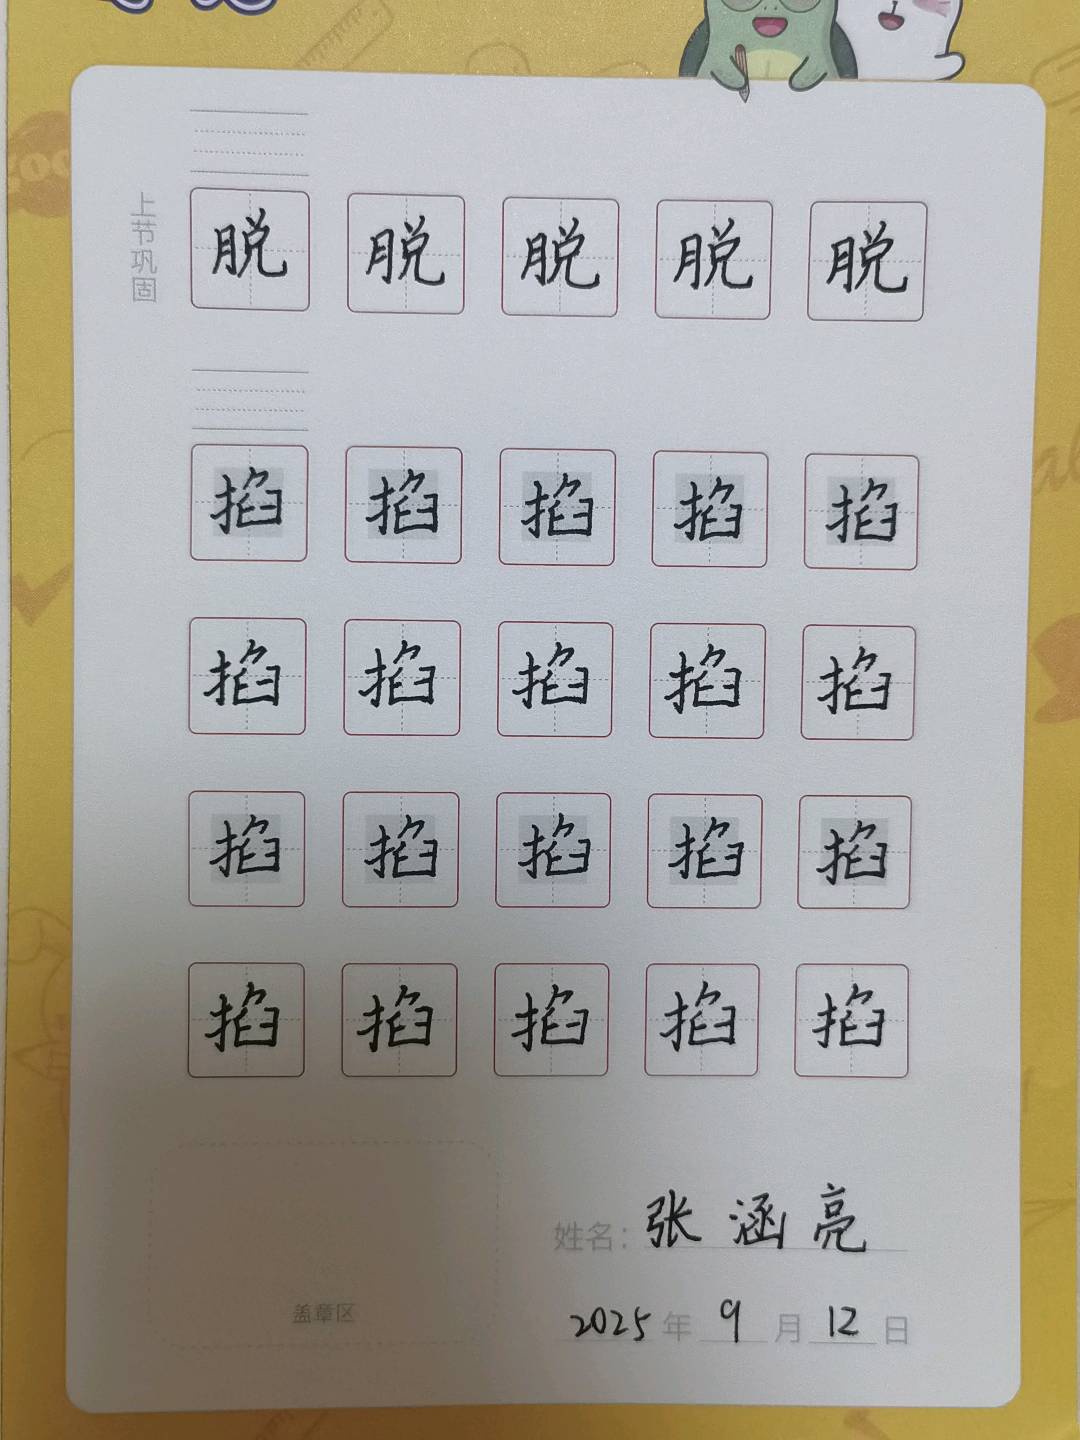 上节巩固
脱 脱 脱 脱 脱
掐 掐 掐 掐 掐
掐 掐 掐 掐 掐
掐 掐 掐 掐 掐
掐 掐 掐 掐 掐
姓名：张涵亮
盖章区
2025年9月12日